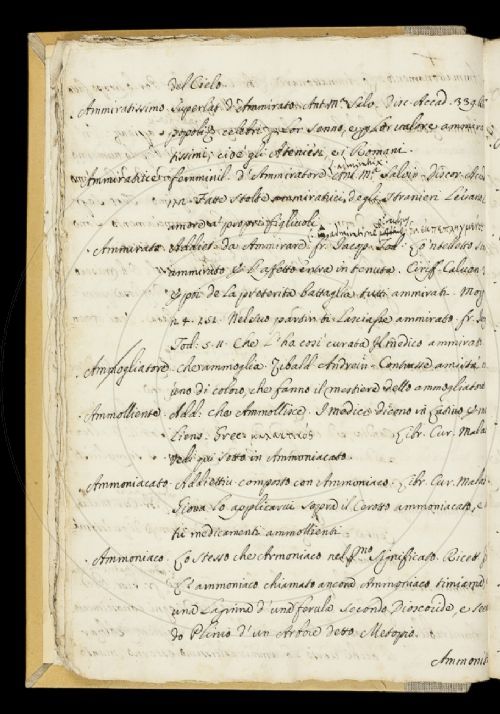 del Cielo.
Ammiratissimo Superlat. d'Ammirato. Ant. Mª Salv. Disc. Accad. 339.
popoli celebri p lor senno, e p lor valore ammira
tissimi, cioè gli Ateniesi e i Romani.
Ammiratrice femminil. d'Ammiratore. Ant. Mª Salvin. Discor. Acca
admiratrix.
Fatte stolte ammiratrici degli stranieri. Levaro l'
amore a' proprj figliuoli
Ammirato Addiet. da Ammirare. fr. Jacop. Tod. Lo'ntelletto sta
ammirato e l'affetto entra in tenuta. Ciriff. Calvan
E poi de la preterita battaglia tutti ammirati. Morg
n. 4. 251. Nel suo partir si lasciasse ammirato. fr. Jac
Tod. 5. 11. Che l'ha così curata 'l medico ammirato
Ammogliatore che rammoglia. Zibald. Andrein. Contrasse amistà
uno di coloro, che fanno il mestiere dello ammogliatore
Ammolliente. Add. che Ammollisce. I medici dicono in Latino
Liens. Grec.
Libr. Cur. Malat
Vedi qui sotto in Ammoniacato.
Ammoniacato Addiettiv. composto con Ammoniaco. Libr. Cur. Malat
Giova lo applicarvi sopra il Cerotto ammoniacato, e
tti medicamenti ammollienti.
Ammoniaco. Lo stesso che Armoniaco nel pmo significato. Ricett
L'ammoniaco chiamato ancora Ammoniaco timiama
una lagrima d'una ferula secondo Dioscoride, e secon
do Plinio d'un Arbore detto Metopio.
Ammonis